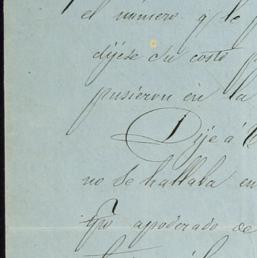 el número q le
dijese su costo
pusieron en la
Dije á
no se hallaba en
apoderado de